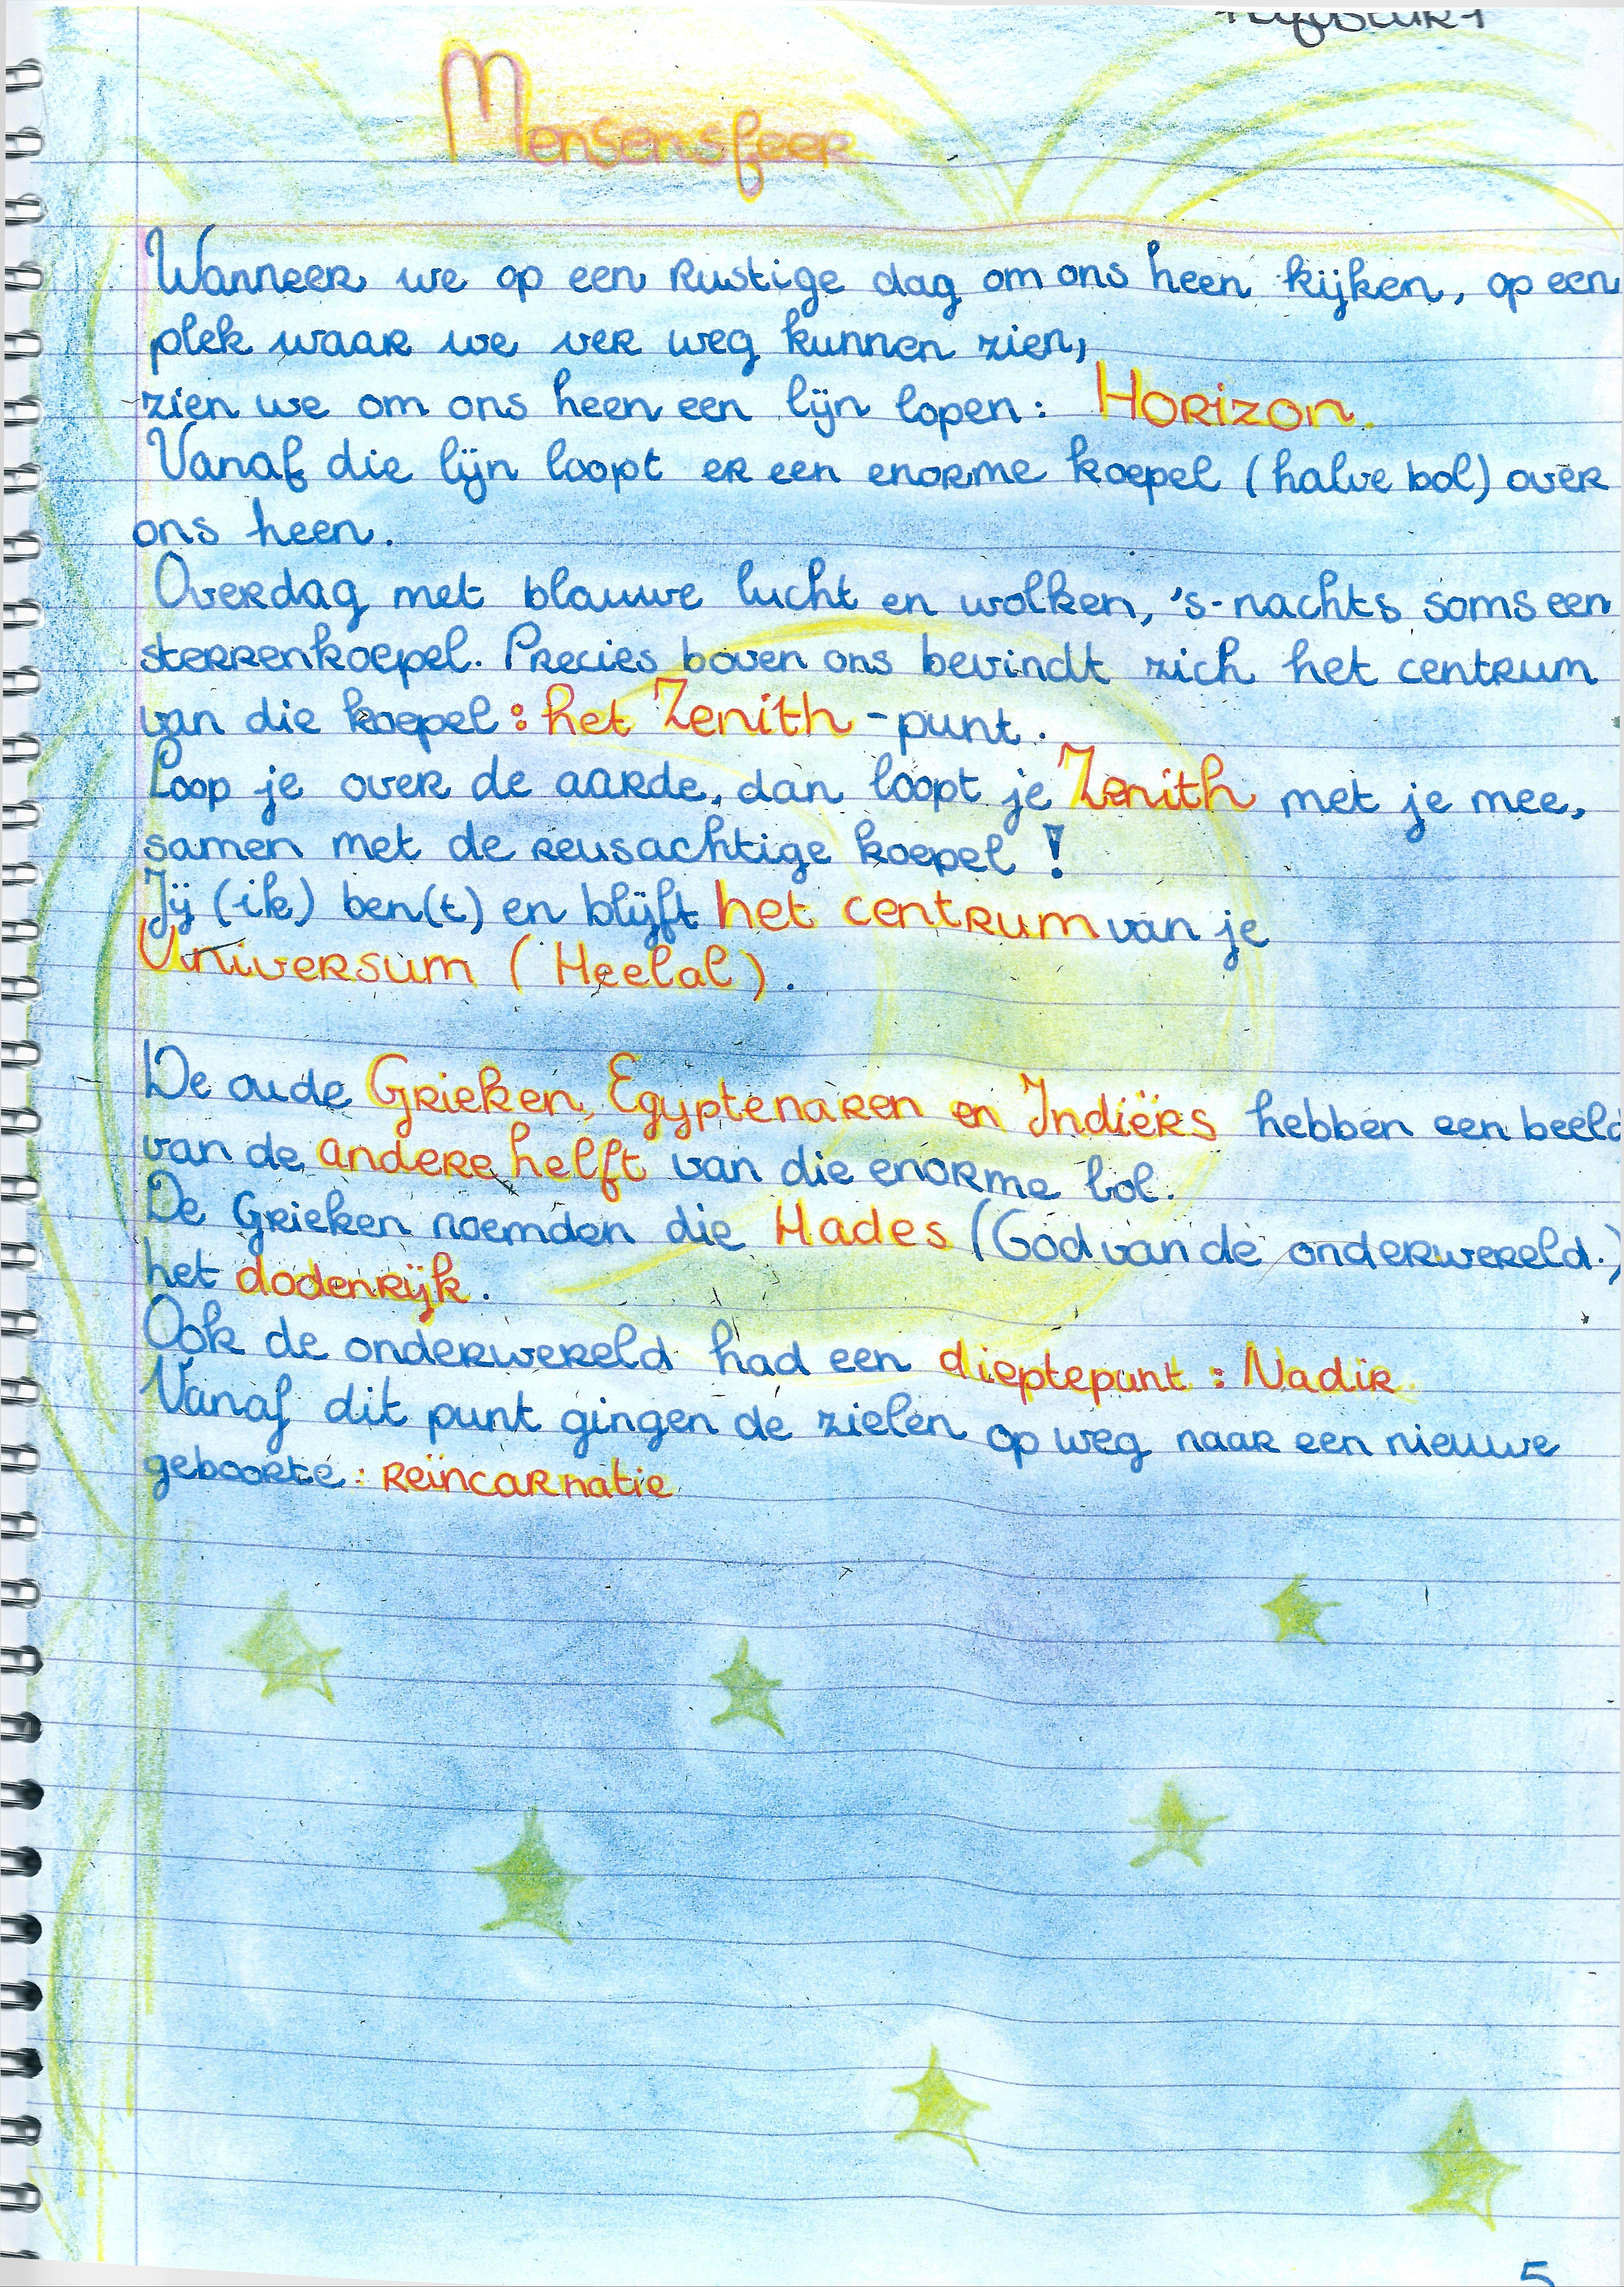 Mensensfeer
Wanneer we op een rustige dag om ons heen kijken, op een
plek waar we ver weg kunnen zien,
zien we om ons heen een lijn lopen: Horizon.
Vanaf die lijn loopt er een enorme koepel (halve bol) over
ons heen.
Overdag met blauwe lucht en wolken, 's-nachts soms een
sterrenkoepel. Precies boven ons bevindt zich het centrum
van die koepel: het Zenith-punt.
Loop je over de aarde, dan loopt je Zenith met je mee,
samen met de reusachtige koepel!
Jij (ik) ben(t) en blijft het centrum van je
Universum (Heelal).
De oude Grieken, Egyptenaren en Indiërs hebben een beeld
van de andere helft van die enorme bol.
De Grieken noemden die Hades (God van de onderwereld.)
het dodenrijk.
Ook de onderwereld had een dieptepunt: Nadir.
Vanaf dit punt gingen de zielen op weg naar een nieuwe
geboorte: reïncarnatie
5